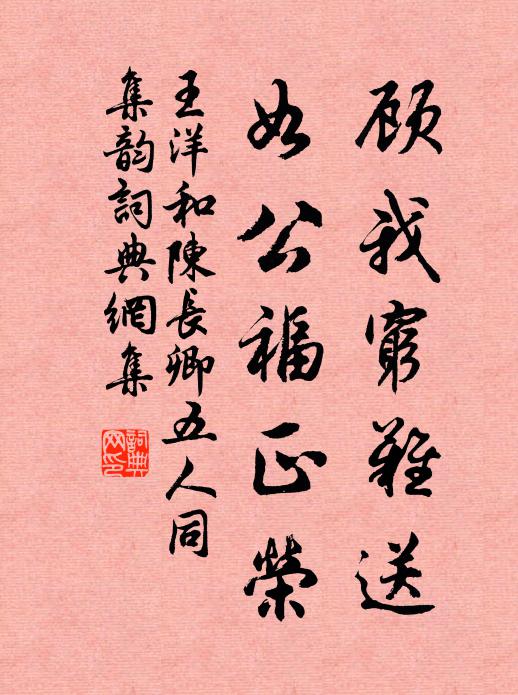 顾我窮難送
如公福正榮
王洋和陳長卿五人同
集韵詞典網集
詞典网印